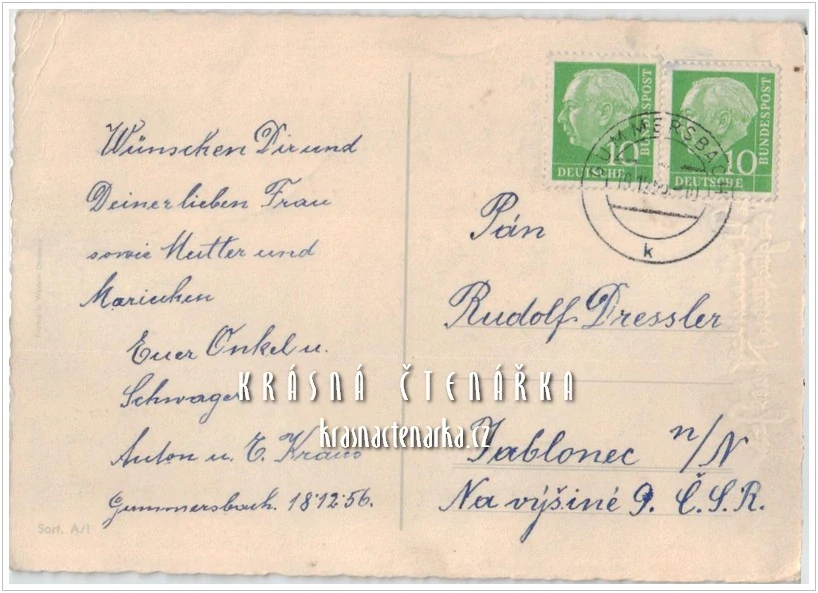 Wünschen Dir und
Deiner lieben Frau
sowie Mutter und
Mariechen
Euer Onkel u.
Schwager
Anton u. E. Kraus
Gummersbach. 18.12.56.
Sort. A/I
10
DEUTSCHE
BUNDESPOST
10
DEUTSCHE
BUNDESPOST
GUMMERSBACH
k
Pán
Rudolf Dressler
Jablonec n/N
Na výšině 9. Č.S.R.
KRÁSNÁ ČTENÁŘKA
krasnactenarka.cz